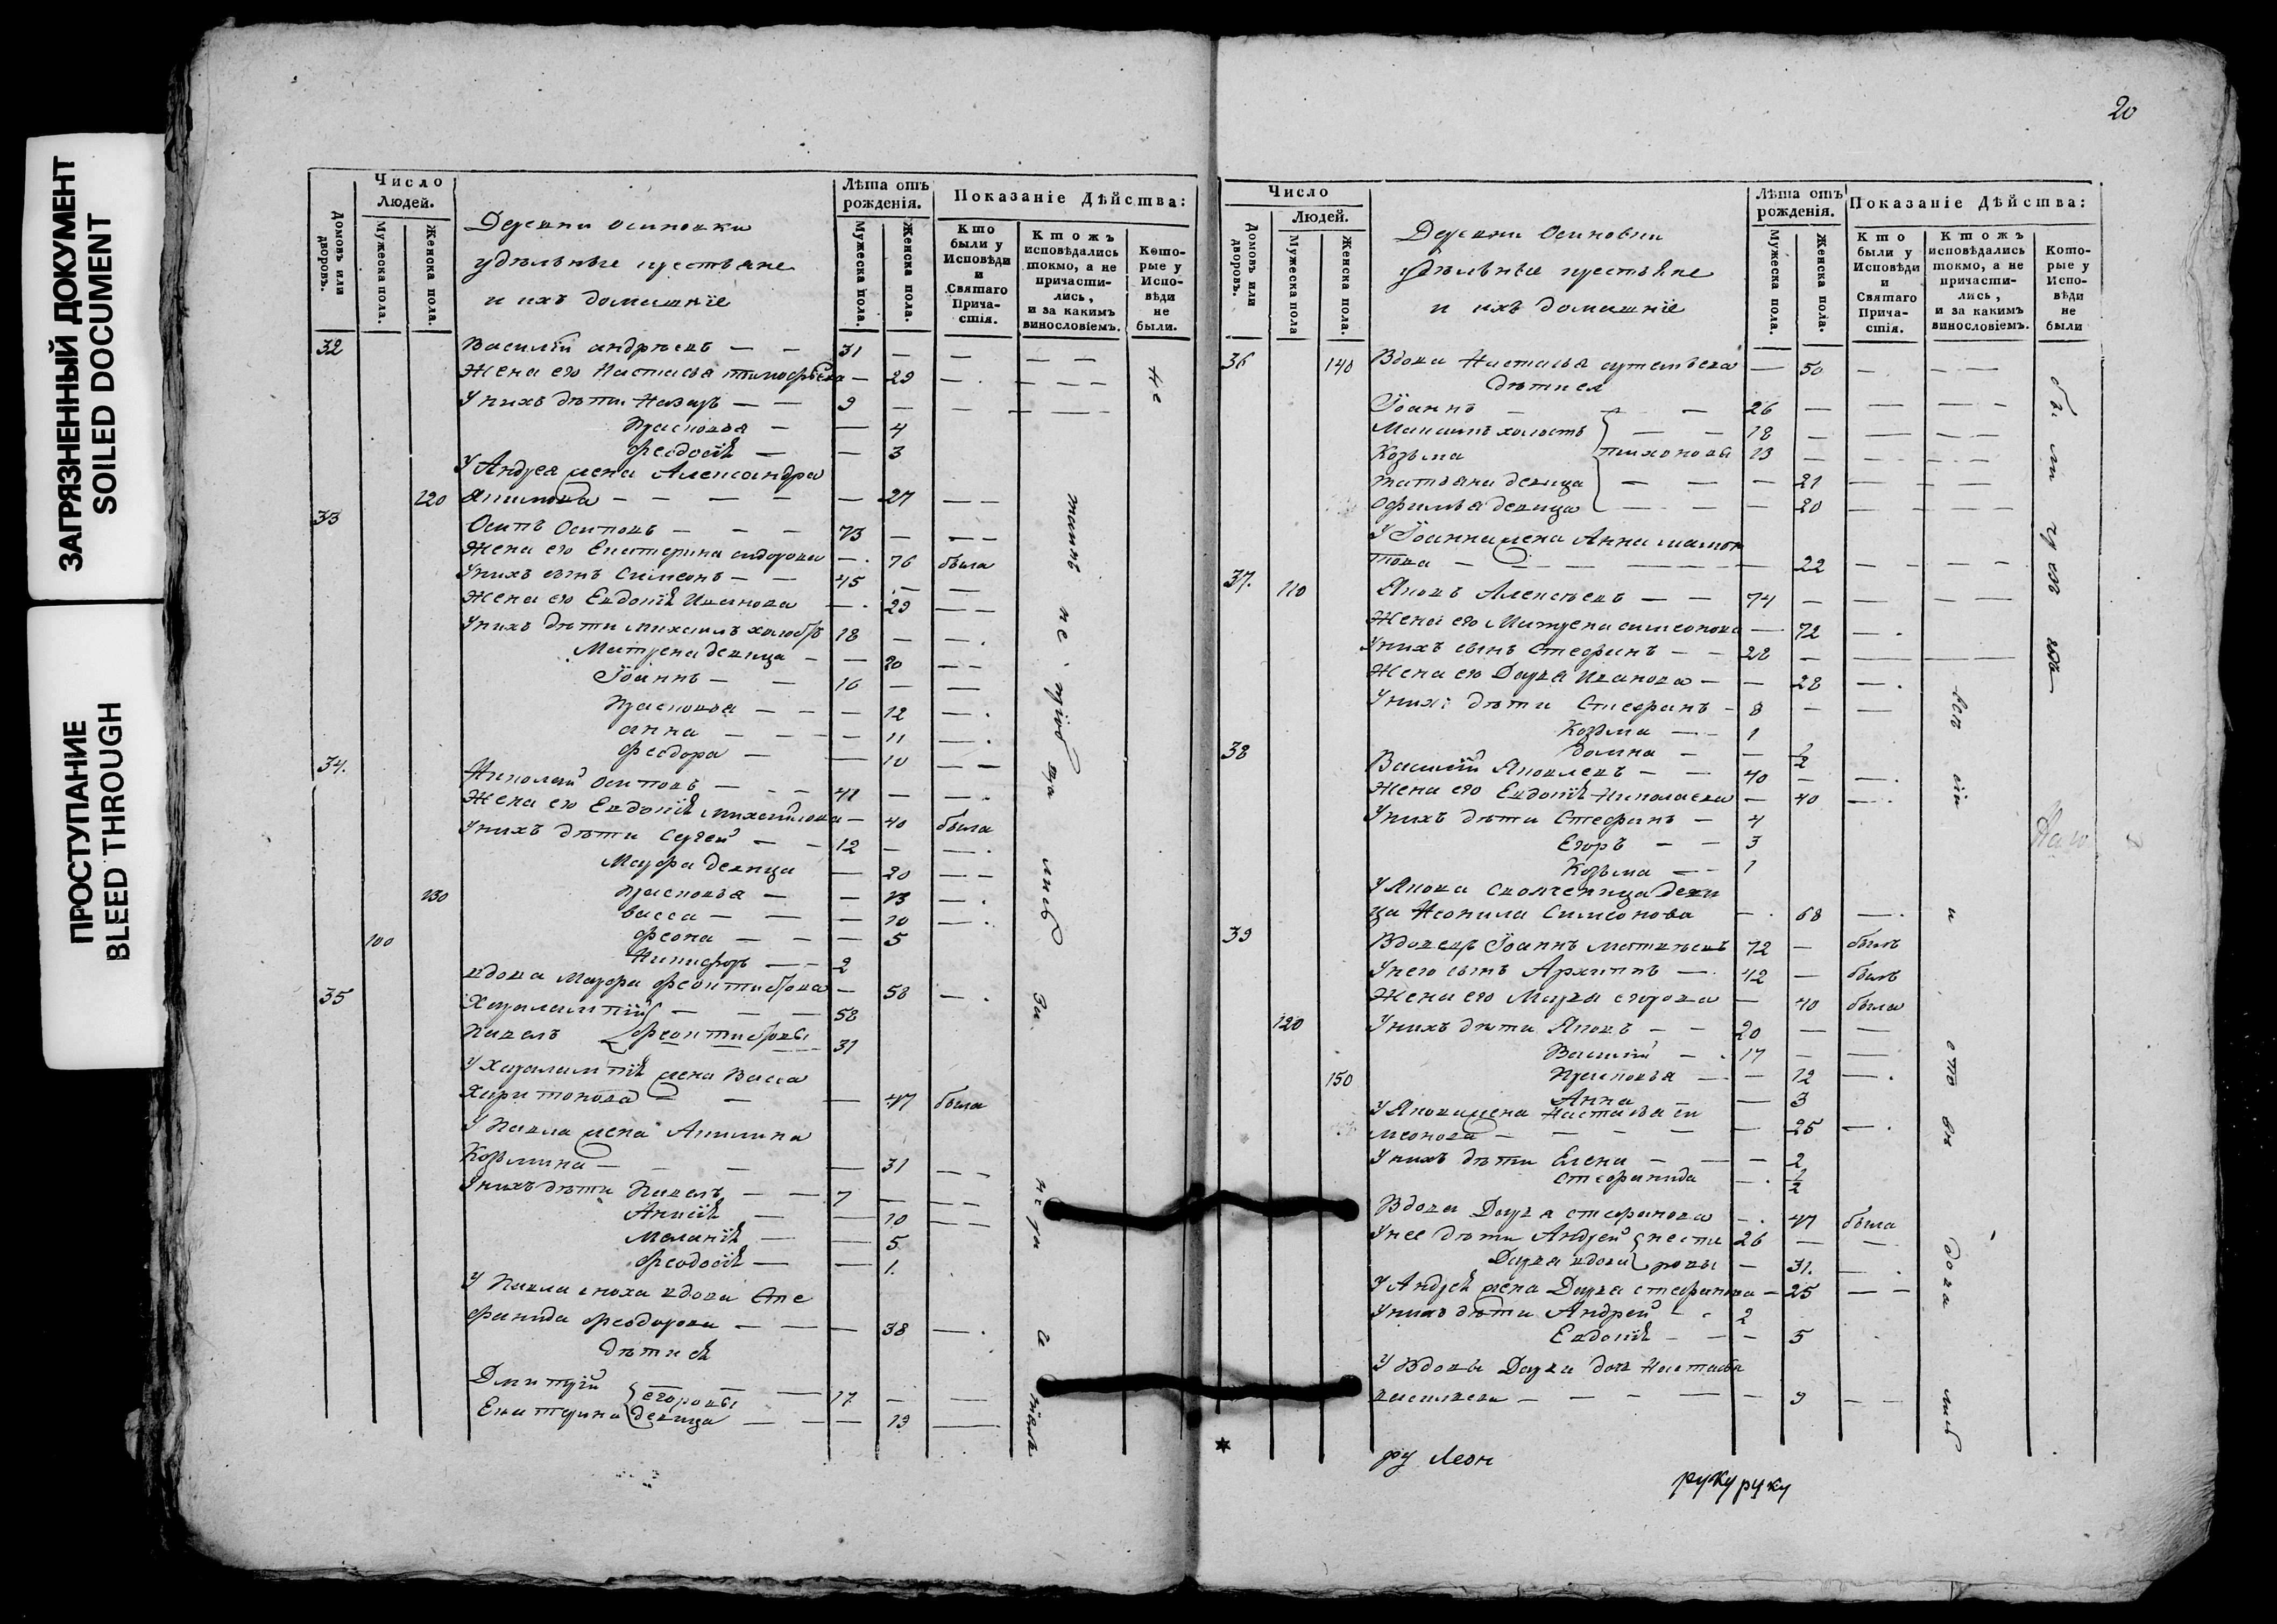 ЗАГРЯЗНЕННЫЙ ДОКУМЕНТ
SOILED DOCUMENT
ПРОСТУПАНИЕ
BLEED THROUGH
Число Людей.
Домовъ или дворовъ.
Мужеска пола.
Женска пола.
Деревни осиновки
удѣльные крестьяне
и ихъ домашніе
Лѣта отъ рожденія.
Мужеска пола.
Женска пола.
Показаніе Дѣйства:
Кто были у Исповѣди и Святаго Причастія.
Ктожъ исповѣдались токмо, а не причастились, и за какимъ винословіемъ.
Которые у Исповѣди не были.
32 Василій андреевъ — — 31 — — — —
Жена его Настасья тимофѣева — 29 — — — —
У нихъ дѣти Назаръ — — 9 — — — —
Прасковья — — 4
феодосія — — 3
У Андрея жена Александра
120 акимова — — — — — 27 — —
33 Осипъ Осиповъ — — — 73 — — —
Жена его Екатерина сидорова — 76 была
У нихъ сынъ Симеонъ — — 45 — —
Жена его Евдокія Иванова — 29 — —
У нихъ дѣти михаилъ холостъ 18 — —
Матрена девица — — 20 — —
Іоаннъ — — 16 — —
Прасковья — — — 12 —
анна — — — 11 —
феодора — — 10 — —
34. Николай осиповъ — — — 41 — —
Жена его Евдокія михайлова — 40 была
У нихъ дѣти Сергей — — 12 — —
Мавра девица — 20 — —
130 Прасковья — — 13 —
васса — — — 10 —
100 феона — — — 5
Никифоръ — — 2
35 вдова Мавра феоктистова — 58 —
Харлампій — — — 58
Павелъ феоктистовы 31
У Харлампія жена Васса
Харитонова — — — 47 была
У Павла жена Акилина
Козьмина — — — 31 — —
У нихъ дѣти Павелъ — — 7 — —
Анисія — — 10 — —
Меланія — — 5
феодосія — — 1.
У Павла сноха вдова Сте
фанида феодорова — — — 38 —
дѣти ея
Дмитрій егоровы — — 17 — —
Екатерина девица — — 19 —
не
20
Число Людей.
Домовъ или дворовъ.
Мужеска пола
Женска пола.
Деревни Осиновки
удѣльные крестьяне
и ихъ домашніе
Лѣта отъ рожденія.
Мужеска пола.
Женска пола.
Показаніе Дѣйства:
Кто были у Исповѣди и Святаго Причастія.
Ктожъ исповѣдались токмо, а не причастились, и за какимъ винословіемъ.
Которые у Исповѣди не были
36 140 Вдова Настасья артемьева — 50 — — —
дѣти ея
Іоаннъ — — 26 — — — —
Максимъ холостъ — — 18 — — — —
Козьма тихоновы 13 — — — —
татьяна девица — — — 21 — — —
офимья девица — — — 20 — — —
У Іоанна жена Анна мамон
това — — — — — 22 — — — —
37. 110 Яковъ Алексеевъ — — 74 — — — —
Жена его Матрена симеонова — 72 —
У нихъ сынъ Стефанъ — — 28 — — —
Жена его Дарья Иванова — — 28 —
У нихъ дѣти Стефанъ — 8 — —
Козьма — — 1
домна — — 1/2
38 Василій Яковлевъ — — 40 — —
Жена его Евдокія Николаева — 40 —
У нихъ дѣти Стефанъ — 4
Егоръ — — 3
Козьма — — 1
У Якова свояченица деви
ца Неонила Симеонова — 68 —
39 Вдовецъ Іоаннъ матвѣевъ 72 — былъ
У него сынъ Архиппъ — 42 — былъ
Жена его Марѳа егорова — 40 была
120 У нихъ дѣти Яковъ — — 20 — —
Василій — 17 — —
150 Прасковья — — 12 —
Анна — — 3
У Якова жена Настасья си
меонова — — — — — 25 —
У нихъ дѣти Елена — — — 2
стефанида — 1/2
Вдова Дарья стефанова — 47 была
У нее дѣти Андрей несте 26 — —
Дарья вдова ровы — 31. —
У Андрея жена Дарья стефанова — 25 — —
У нихъ дѣти Андрей — 2
Евдокія — — — 5
У Вдовы Дарьи дочь Настасья
васильева — — — — — 9 — —
были
ру Леон
руку руку